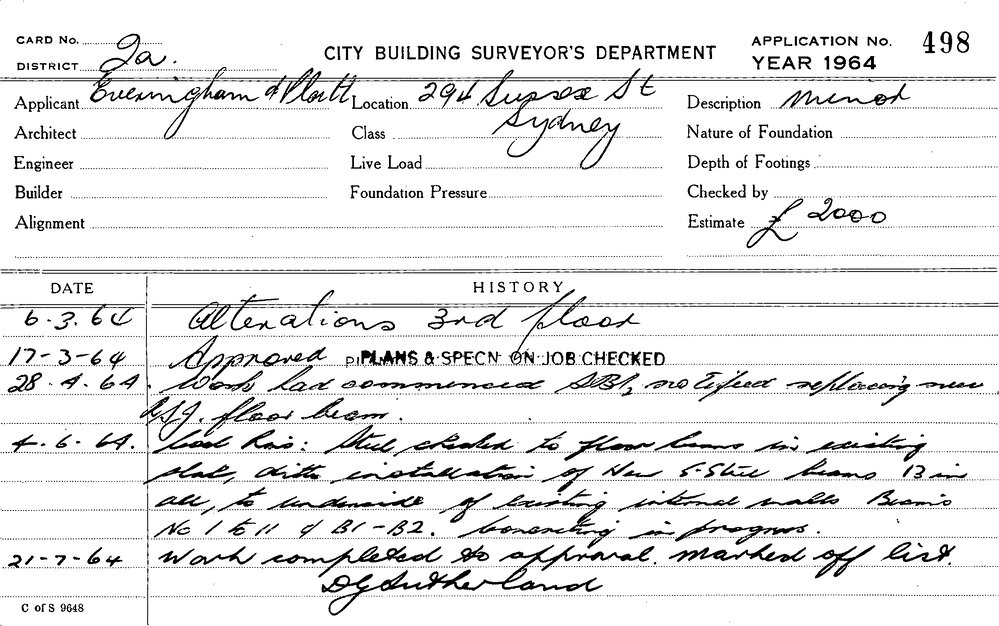 CARD No.
DISTRICT 2a.
CITY BUILDING SURVEYOR'S DEPARTMENT
APPLICATION No. 498
YEAR 1964
Applicant Everingham & Platt Location 294 Sussex St Description minor
Architect Class Sydney Nature of Foundation
Engineer Live Load Depth of Footings
Builder Foundation Pressure Checked by
Alignment Estimate £ 2000
DATE HISTORY
6.3.64 Alterations 3rd floor
17-3-64 Approved PLANS & SPECN ON JOB CHECKED
28.4.64. Work had commenced notified replacing new
RSJ. floor beam.
4.6.64. Steel checked to floor beams in existing
slab, ditto installation of New Steel beams 13 in
all, to underside of existing internal walls Beams
No 1 to 11 & B1-B2. Concreting in progress.
21-7-64 Work completed to approval. marked off list.
DGSutherland
C of S 9648